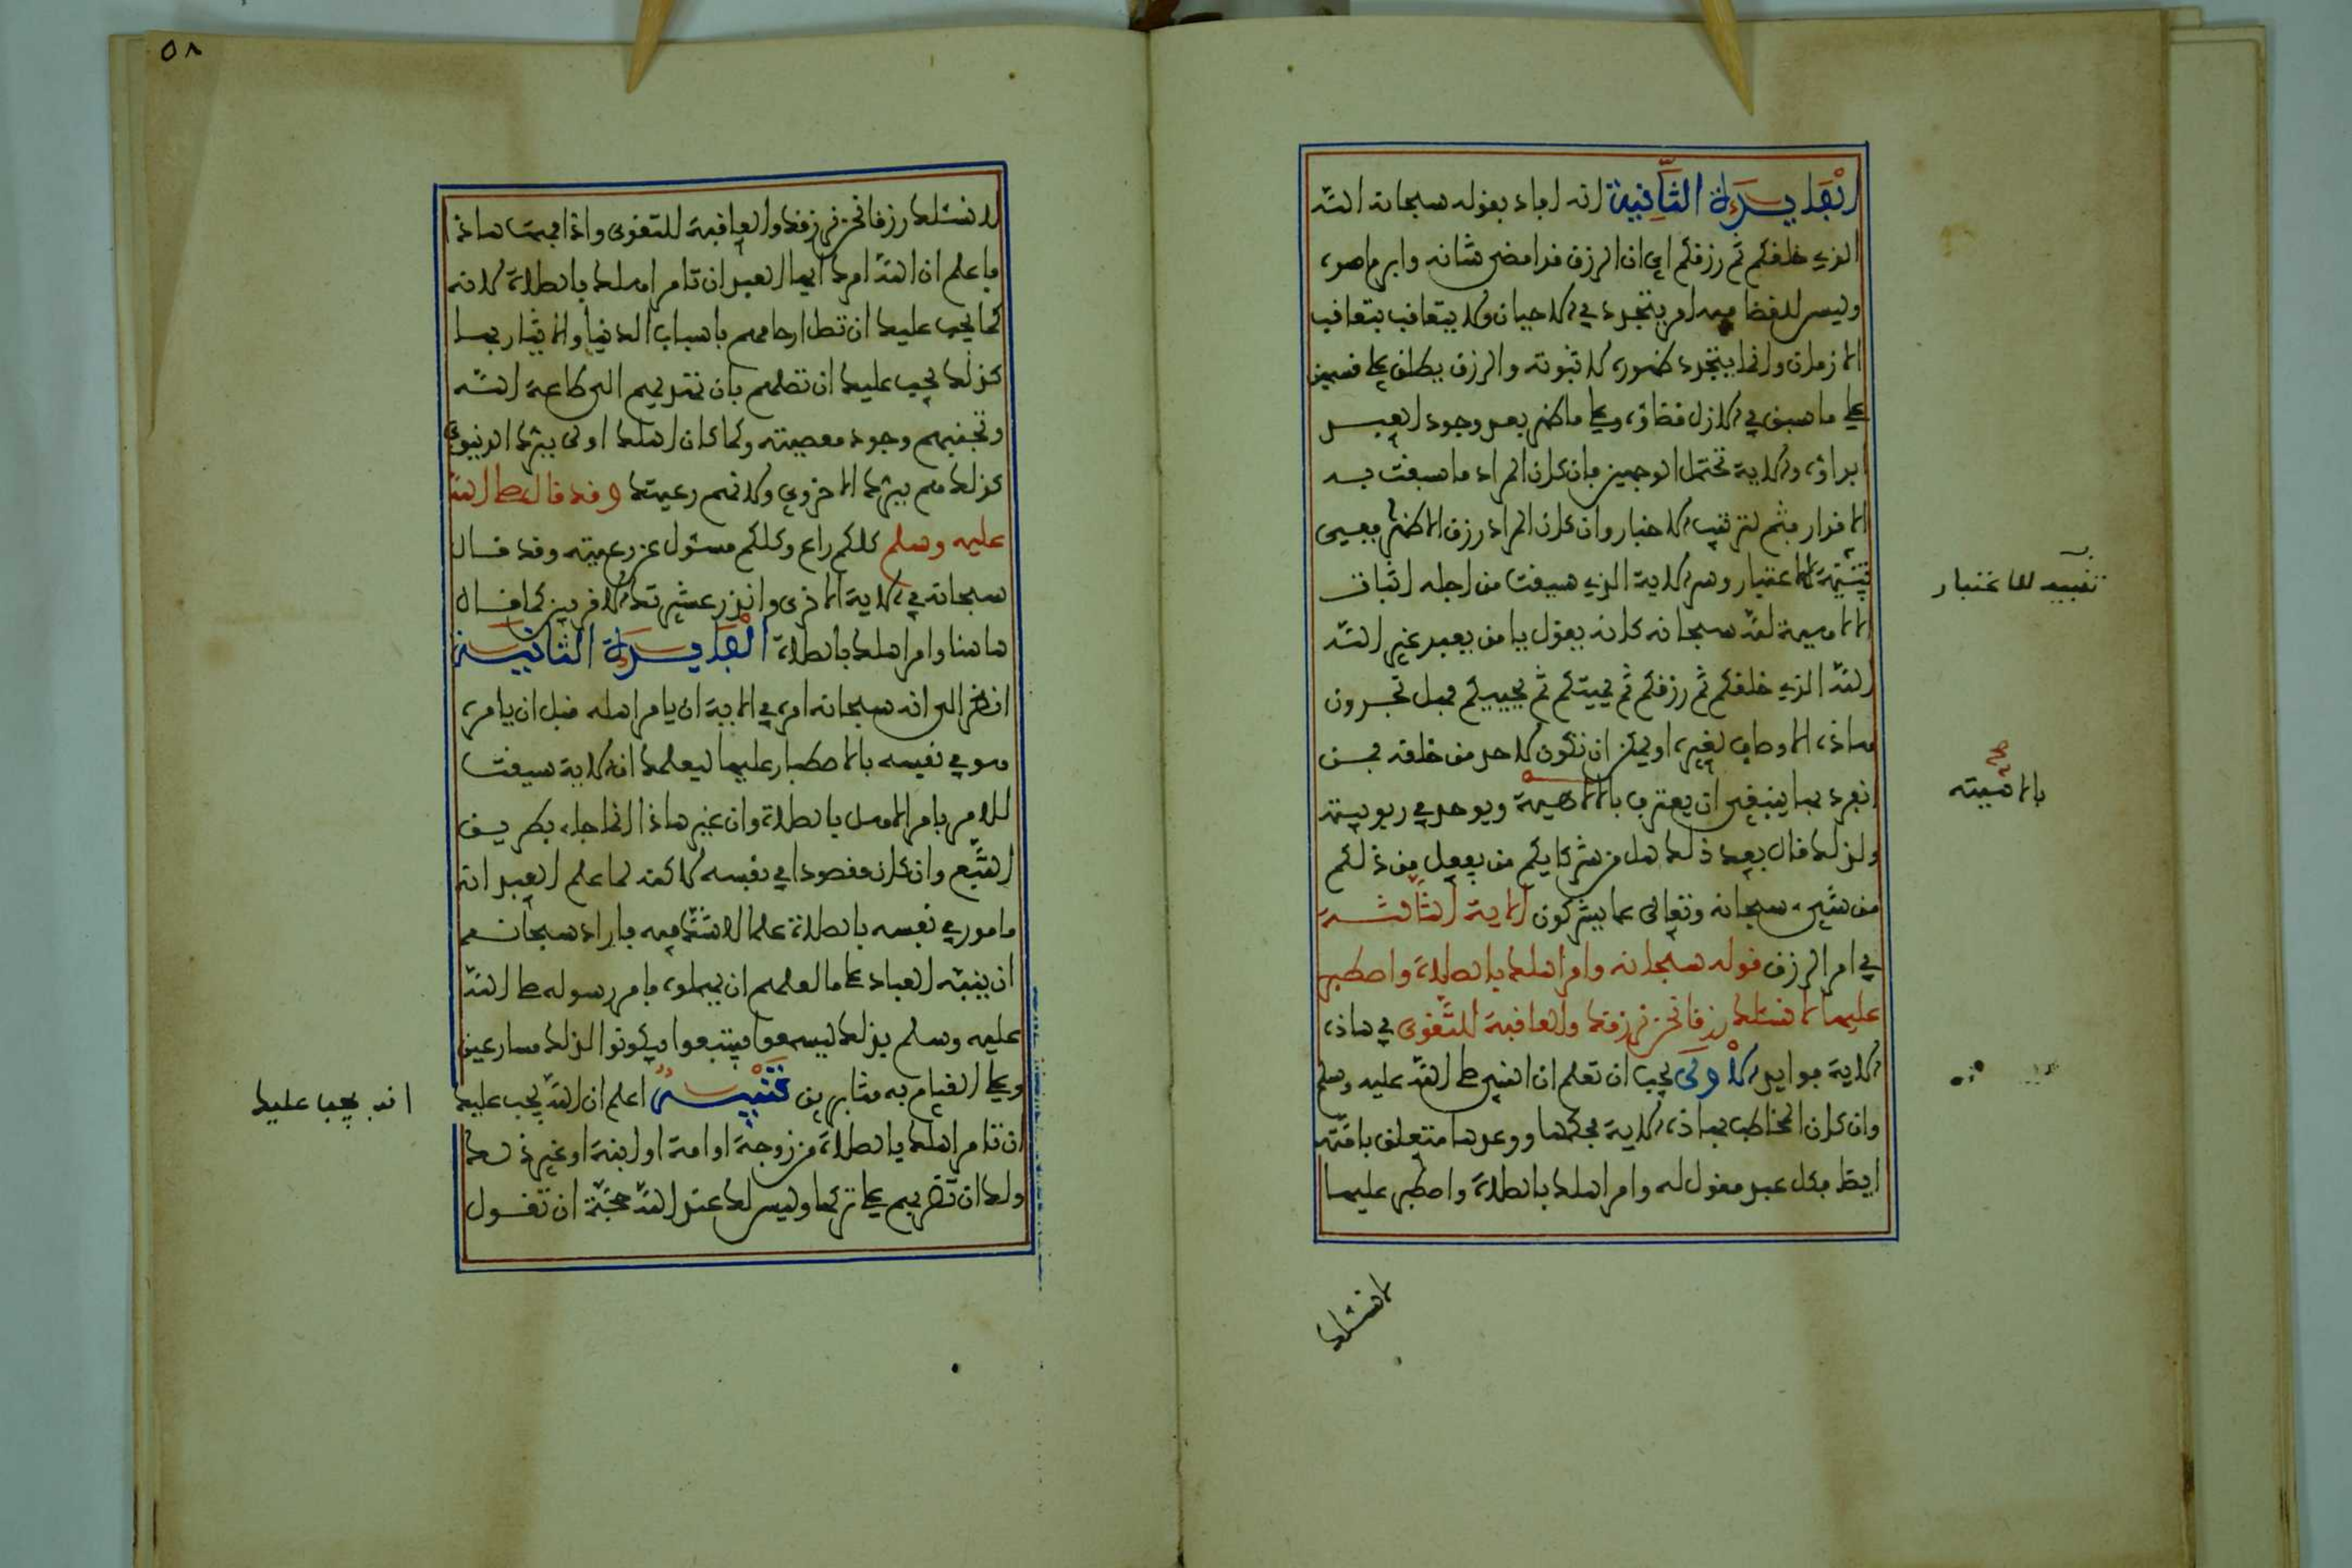 الفايدة الثانية انه افاد بقوله سبحانه الله
الذي خلقكم ثم رزقكم اي ان الرزق قد امضى شانه وابرم امره
وليس للقضا فيه امر يتجدد في الاحيان ولا يتعاقب بتعاقب
الازمان وانما يتجدد ظهوره لا ثبوته والرزق يطلق على قسمين
على ما سبق في الازل قضاؤه وعلى ما ظهر بعد وجود العبد
ابداؤه والاية تحتمل الوجهين فان كان المراد ما سبقت به
الاقدار فثم لترتيب الاخبار وان كان المراد رزق الاظهار فهي
تنبيه للاعتبار وسر الاية الذي سيقت من اجله اثبات
الالوهية لله سبحانه كانه يقول يا من يعبد غير الله
الله الذي خلقكم ثم رزقكم ثم يميتكم ثم يحييكم فهل تجدون
هاذه الاوصاف لغيره او يمكن ان تكون لاحد من خلقه فمن
انفرد بها ينبغي ان يعترف بالالهية ويوحد في ربوبيته
ولذلك قال بعد ذلك هل من شركايكم من يفعل من ذلكم
من شيء سبحانه وتعالى عما يشركون الاية الثالثة
في امر الرزق قوله سبحانه وامر اهلك بالصلاة واصطبر
عليها لا نسئلك رزقا نحن نرزقك والعاقبة للتقوى في هاذه
الاية فوايد الاولى يجب ان تعلم ان النبي صلى الله عليه وسلم
وان كان المخاطب بهاذه الاية فحكمها ووعدها متعلق بامته
ايضا فكل عبد مقول له وامر اهلك بالصلاة واصطبر عليها
تنبيه للاعتبار
بالاهيته
لا نسئلك
٥٨
لا نسئلك رزقا نحن نرزقك والعاقبة للتقوى واذا فهمت هاذا
فاعلم ان الله امرك ايها العبد ان تامر اهلك بالصلاة لانه
كما يجب عليك ان تصل ارحامهم باسباب الدنيا والايثار بها
كذلك يجب عليك ان تصلهم بان تهديهم الى طاعة الله
وتجنبهم وجود معصيته وكما كان اهلك اولى ببرك الدنيوي
كذلك هم ببرك الاخروي ولانهم رعيتك وقد قال صلى الله
عليه وسلم كلكم راع وكلكم مسئول عن رعيته وقد قال
سبحانه في الاية الاخرى وانذر عشيرتك الاقربين كما قال
هاهنا وامر اهلك بالصلاة الفايدة الثانية
انظر الى انه سبحانه امره في الاية ان يامر اهله قبل ان يامره
هو في نفسه بالاصطبار عليها ليعلمك ان الاية سيقت
للامر بامر الاهل بالصلاة وان غير هاذا انما جاء بطريق
التبع وان كان مقصودا في نفسه لاكنه لما علم العبد انه
مامور في نفسه بالصلاة علما لا شك فيه فاراد سبحانه
ان ينبه العباد على ما لعلهم ان يهملوه فامر رسوله صلى الله
عليه وسلم بذلك ليسمعوا فيتبعوا فيكونوا لذلك مسارعين
وعلى القيام به مثابرين تنبيه اعلم ان الله يجب عليك
ان تامر اهلك بالصلاة من زوجة او امة او ابنة او غير ذلك
ولك ان تضربهم على تركها وليس لك عند الله حجة ان تقول
انه يجب عليك